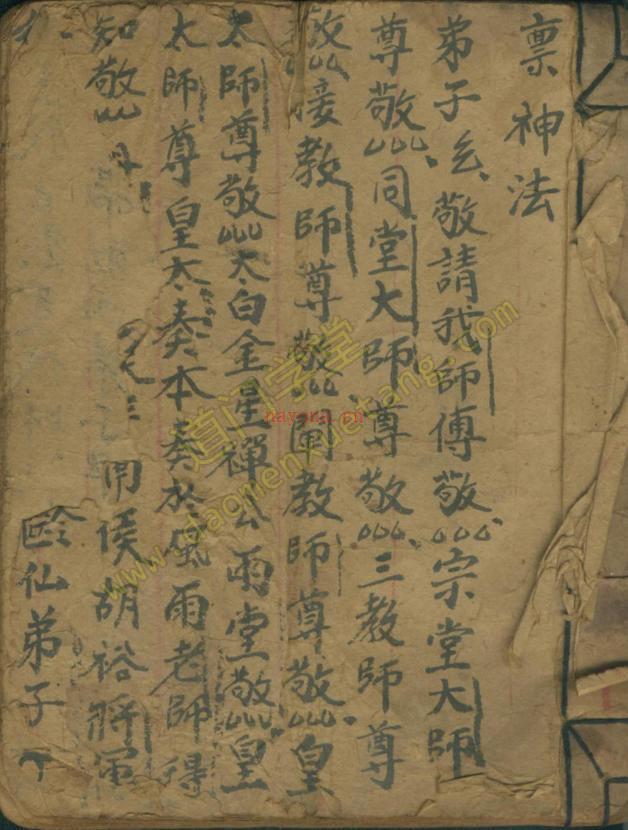 禀神法
弟子厶敬請我師傅敬宗堂大師
尊敬同堂大師尊敬三教師尊
敬接教師尊敬闡教師尊敬皇
太師尊敬太白金星禪公雨堂敬皇
太師尊皇太奏本奏於風雨老師得
知敬
用侯胡裕將軍
仙弟子
道门学堂
www.daomenxuetang.com
nayona.cn